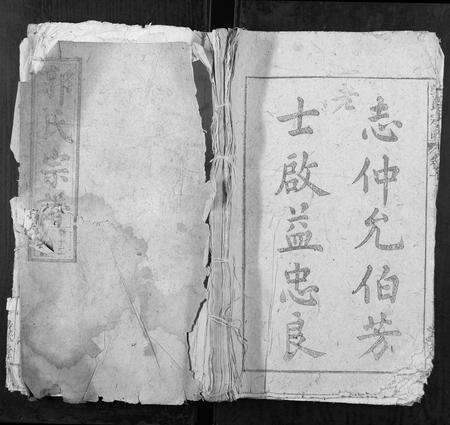 志仲允伯芳
士啟益忠良
氏宗